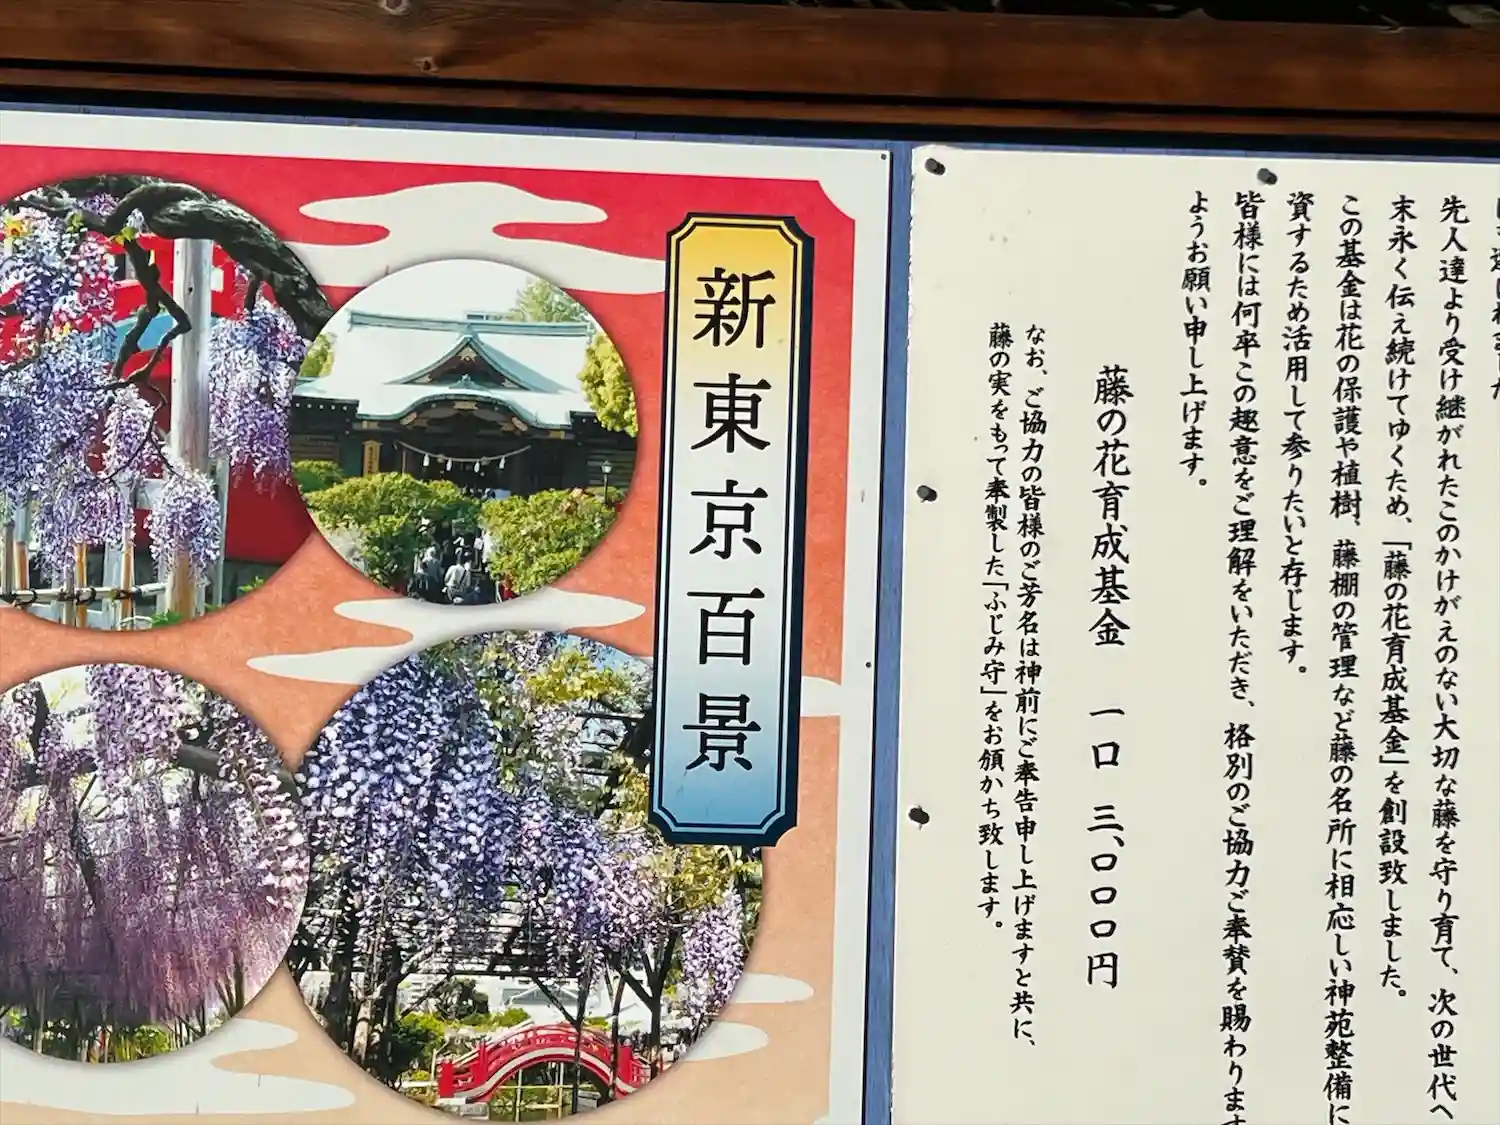 新東京百景
先人達より受け継がれたこのかけがえのない大切な藤を守り育て、次の世代へ
末永く伝え続けてゆくため、「藤の花育成基金」を創設致しました。
この基金は花の保護や植樹、藤棚の管理など藤の名所に相応しい神苑整備に
資するため活用して参りたいと存じます。
皆様には何卒この趣意をご理解をいただき、格別のご協力ご奉賛を賜わります
ようお願い申し上げます。
藤の花育成基金 一口 三、〇〇〇円
なお、ご協力の皆様のご芳名は神前にご奉告申し上げますと共に、
藤の実をもって奉製した「ふじみ守」をお頒かち致します。